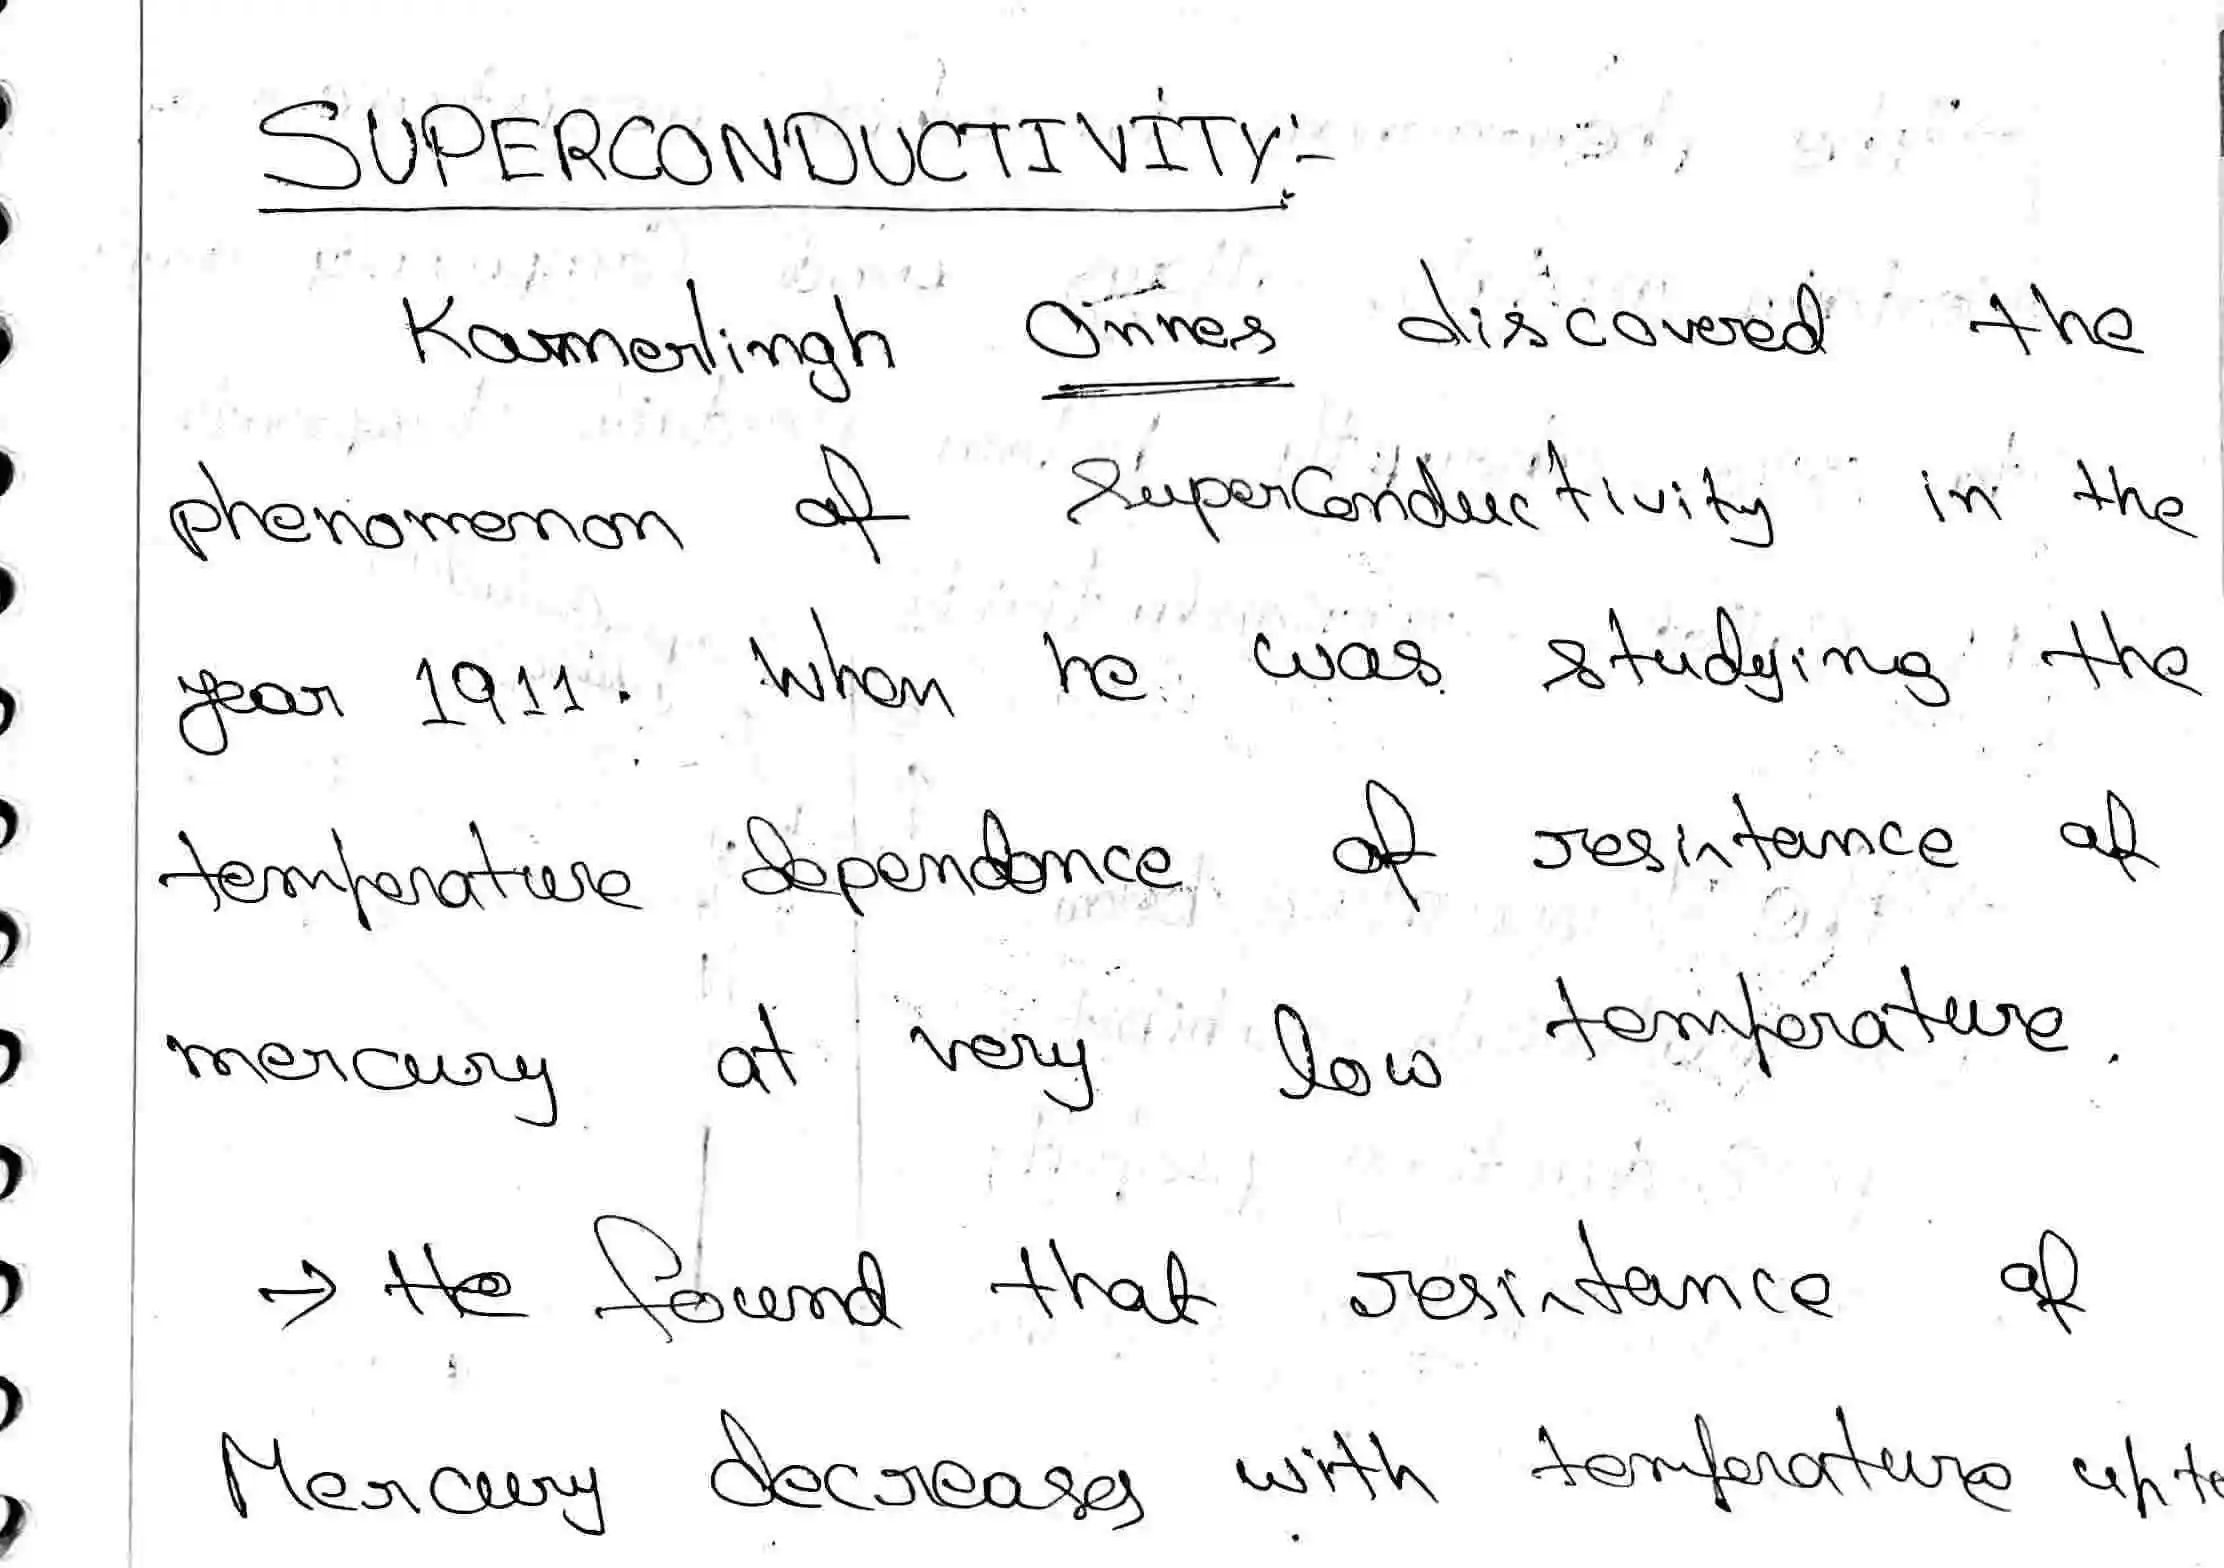 SUPERCONDUCTIVITY:-
Kammerlingh Onnes discovered the
phenomenon of SuperConductivity in the
year 1911. When he was studying the
temperature dependence of resistance of
mercury at very low temperature.
→ He found that resistance of
Mercury decreases with temperature upto